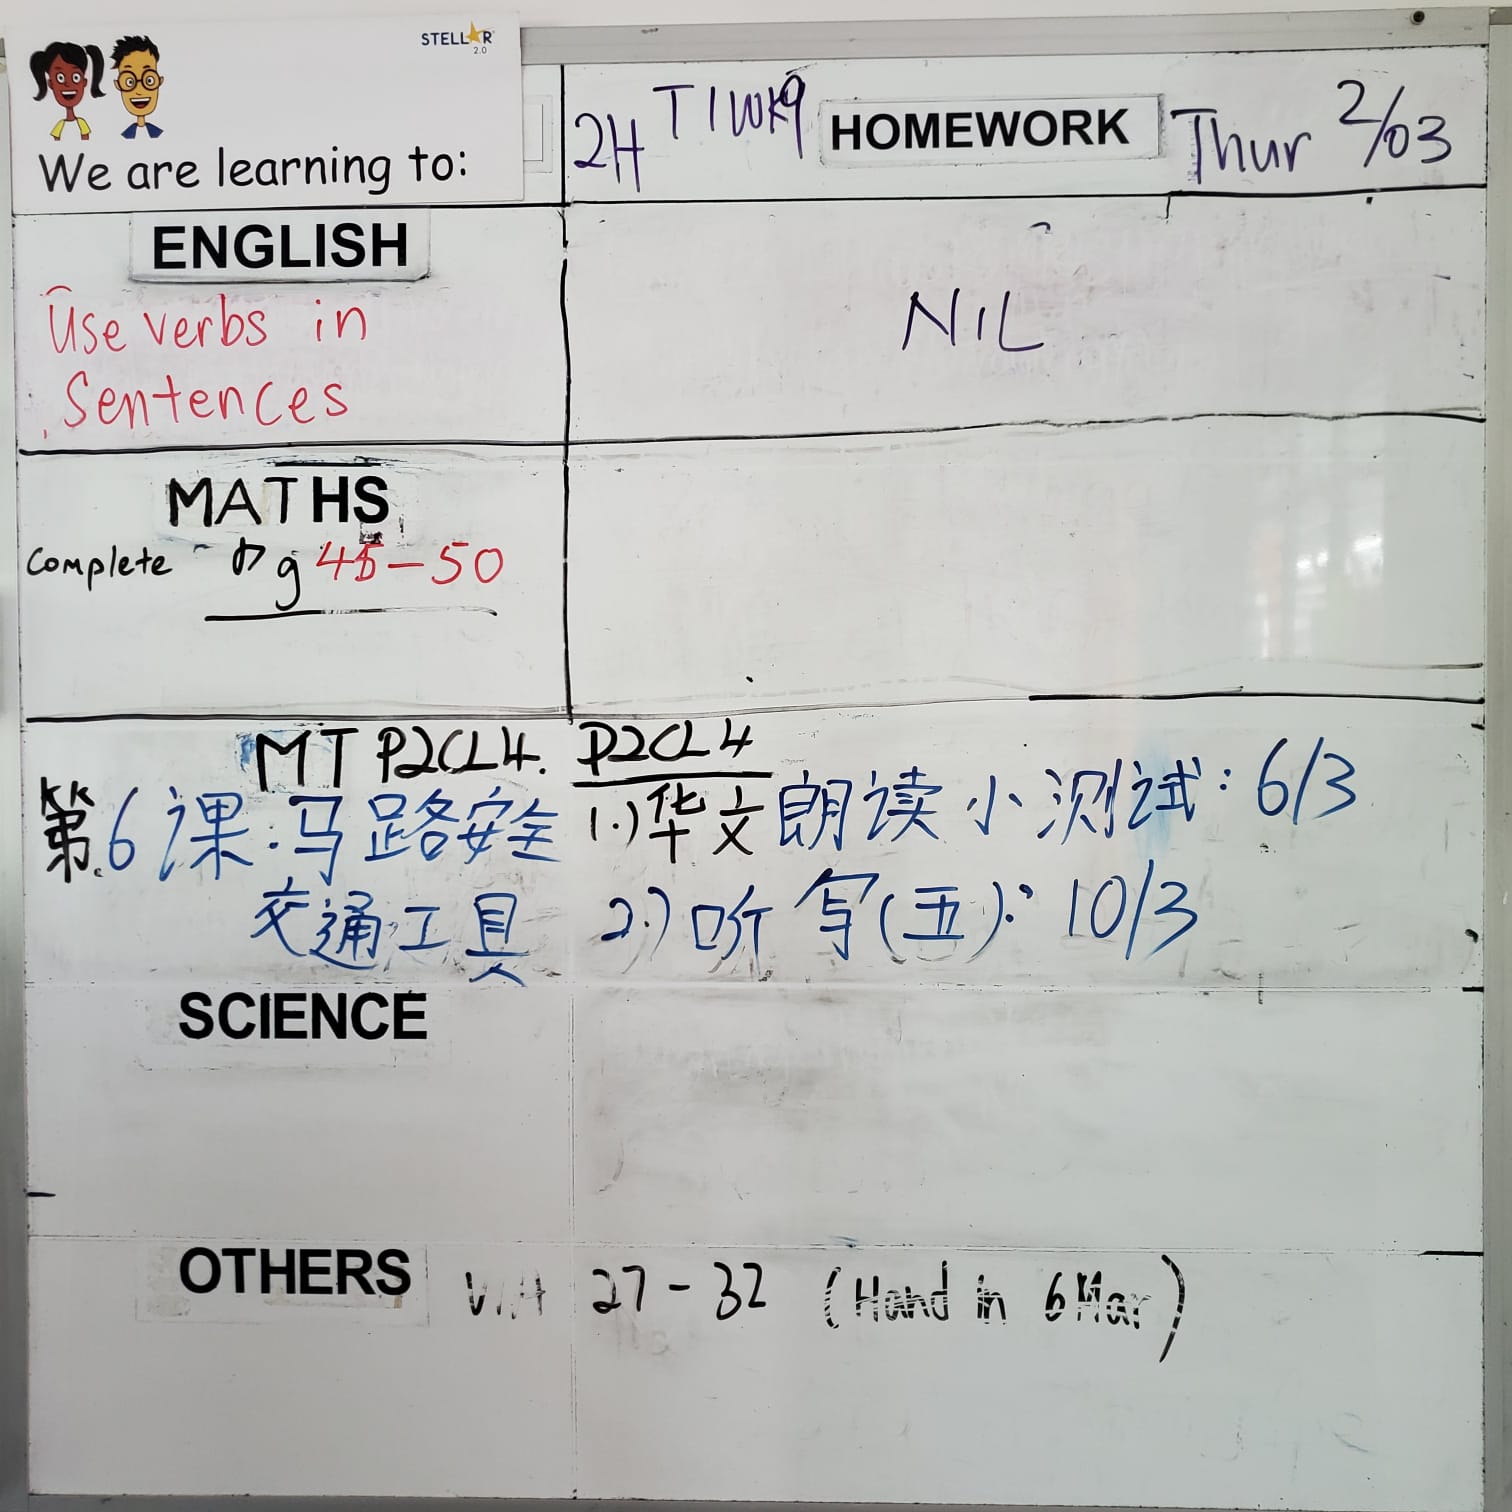 STELLAR 2.0
We are learning to:
2H T1WK9 HOMEWORK Thur 2/03
ENGLISH
Use verbs in
Sentences
NIL
MATHS
Complete Pg 45-50
MT P2CL4. P2CL4
第6课:马路安全
交通工具
1.)华文朗读小测试: 6/3
2.)听写(五): 10/3
SCIENCE
OTHERS
27-32 (Hand in 6 Mar)